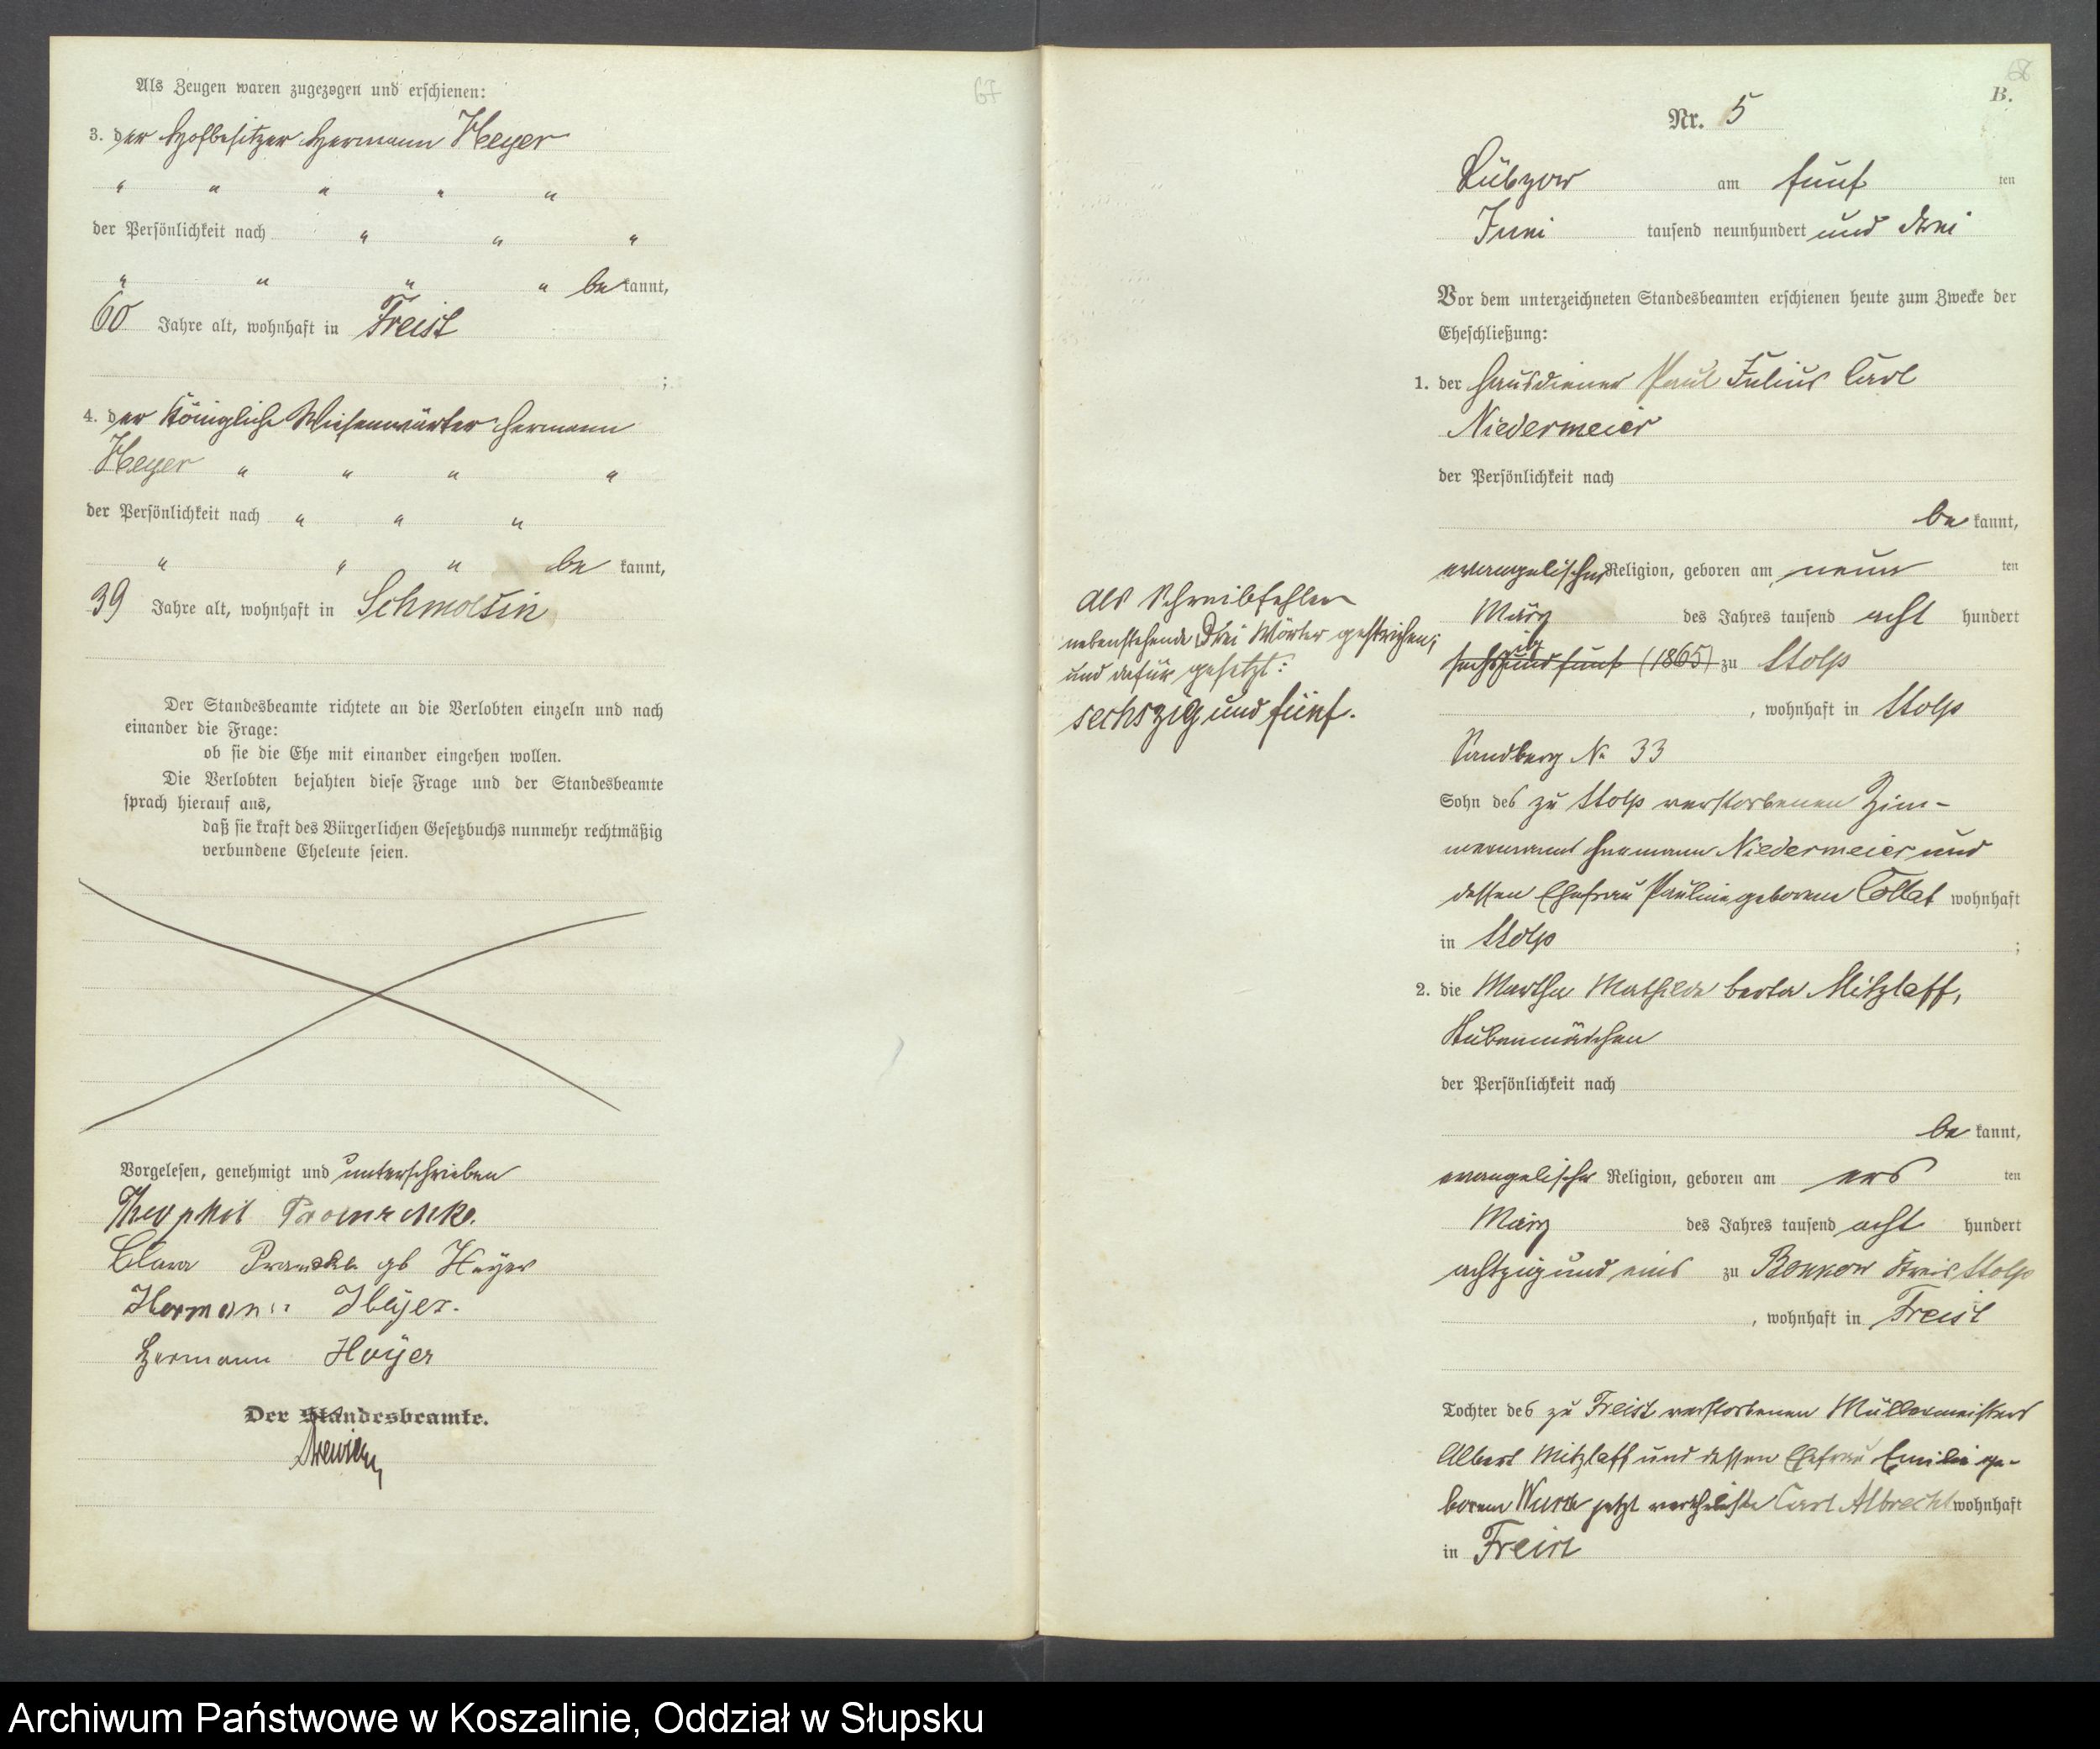 67
Als Zeugen waren zugezogen und erschienen:
3. der Hofbesitzer Hermann Heyer
" " " " "
der Persönlichkeit nach " " "
" " " " bekannt,
60 Jahre alt, wohnhaft in Freist
;
4. der Königliche Wiesenwärter Hermann
Heyer " " " "
der Persönlichkeit nach " " "
" " " be kannt,
39 Jahre alt, wohnhaft in Schmolsin
Der Standesbeamte richtete an die Verlobten einzeln und nach
einander die Frage:
ob sie die Ehe mit einander eingehen wollen.
Die Verlobten bejahten diese Frage und der Standesbeamte
sprach hierauf aus,
daß sie kraft des Bürgerlichen Gesetzbuchs nunmehr rechtmäßig
verbundene Eheleute seien.
Vorgelesen, genehmigt und unterschrieben
Theophil
Clara gb Heyer
Hermann Heyer.
Hermann Heyer
Der Standesbeamte.
68
B.
Nr. 5
Lübzow am fünf ten
Juni tausend neunhundert und drei
Vor dem unterzeichneten Standesbeamten erschienen heute zum Zwecke der
Eheschließung:
1. der Hausdiener Paul Julius Carl
Niedermeier
der Persönlichkeit nach
be kannt,
evangelischer Religion, geboren am neun ten
März des Jahres tausend acht hundert
sechs und fünfzig (1865) zu Stolp
, wohnhaft in Stolp
Sandberg No 33
Sohn des zu Stolp verstorbenen Zim-
mermann Hermann Niedermeier und
dessen Ehefrau Pauline geborene Collat wohnhaft
in Stolp ;
2. die Martha Mathilde Berta Mitzlaff,
Stubenmädchen
der Persönlichkeit nach
be kannt,
evangelischer Religion, geboren am ers ten
März des Jahres tausend acht hundert
achtzig und eins zu Benkow Kreis Stolp
, wohnhaft in Freist
Tochter des zu Freist verstorbenen Müllermeisters
Albert Mitzlaff und dessen Ehefrau Emilie ge-
borene jetzt verehelichte Carl Albrecht wohnhaft
in Freist
Als Schreibfehler
nebenstehende drei Wörter gestrichen;
und dafür gesetzt:
sechszig und fünf.
Archiwum Państwowe w Koszalinie, Oddział w Słupsku